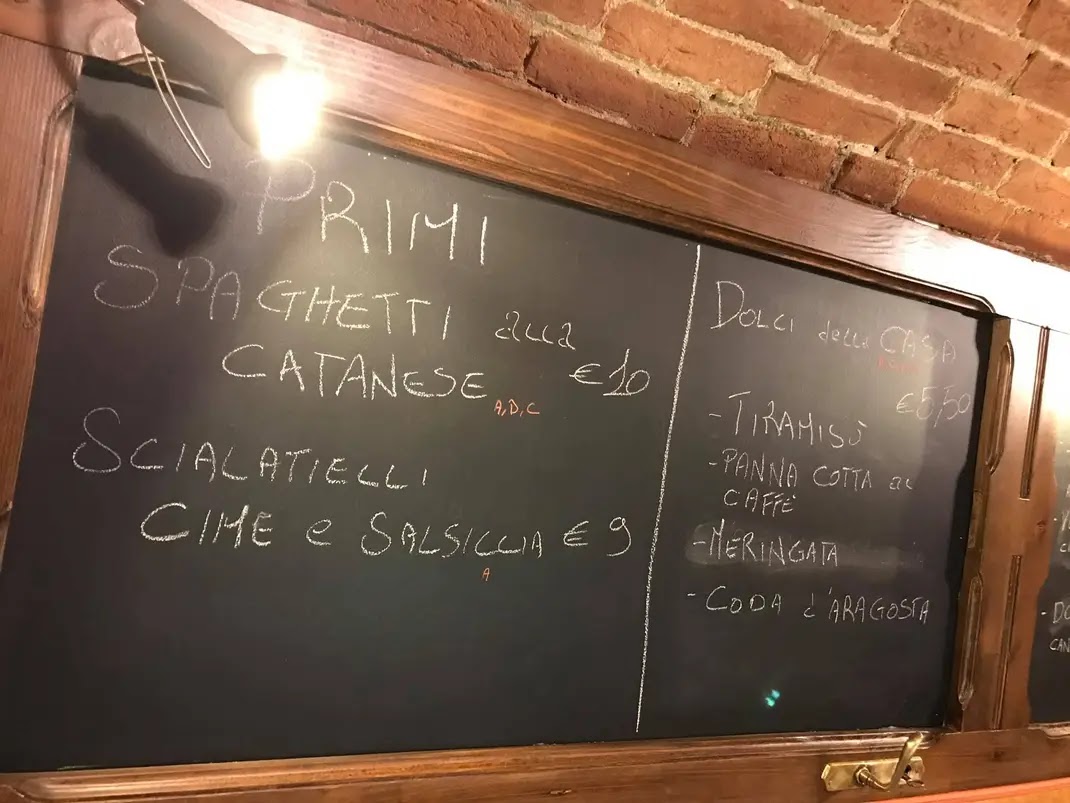 PRIMI
SPAGHETTI alla
CATANESE €10
A,D,C
SCIALATIELLI
CIME e SALSICCIA € 9
A
DOLCI della CASA
€5,50
- TIRAMISÙ
- PANNA COTTA al
CAFFÈ
- MERINGATA
- CODA d'ARAGOSTA